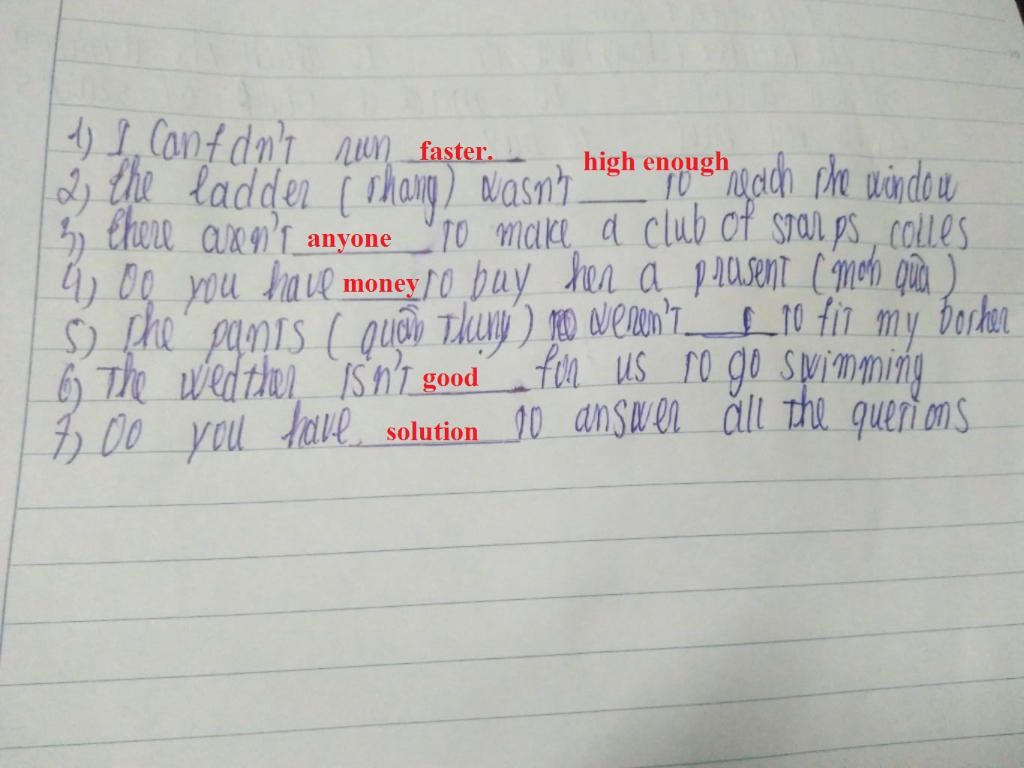 1) I Can't dn't run faster.
2) the ladder (thang) wasn't high enough to reach the window
3) there aren't anyone to make a club of stamps colles
4) Do you have money to buy her a prasent (món quà)
5) The pants (quần Thụng) weren't ___ to fit my borher
6) The weather isn't good for us to go swimming
7) Do you have solution to answer all the querions